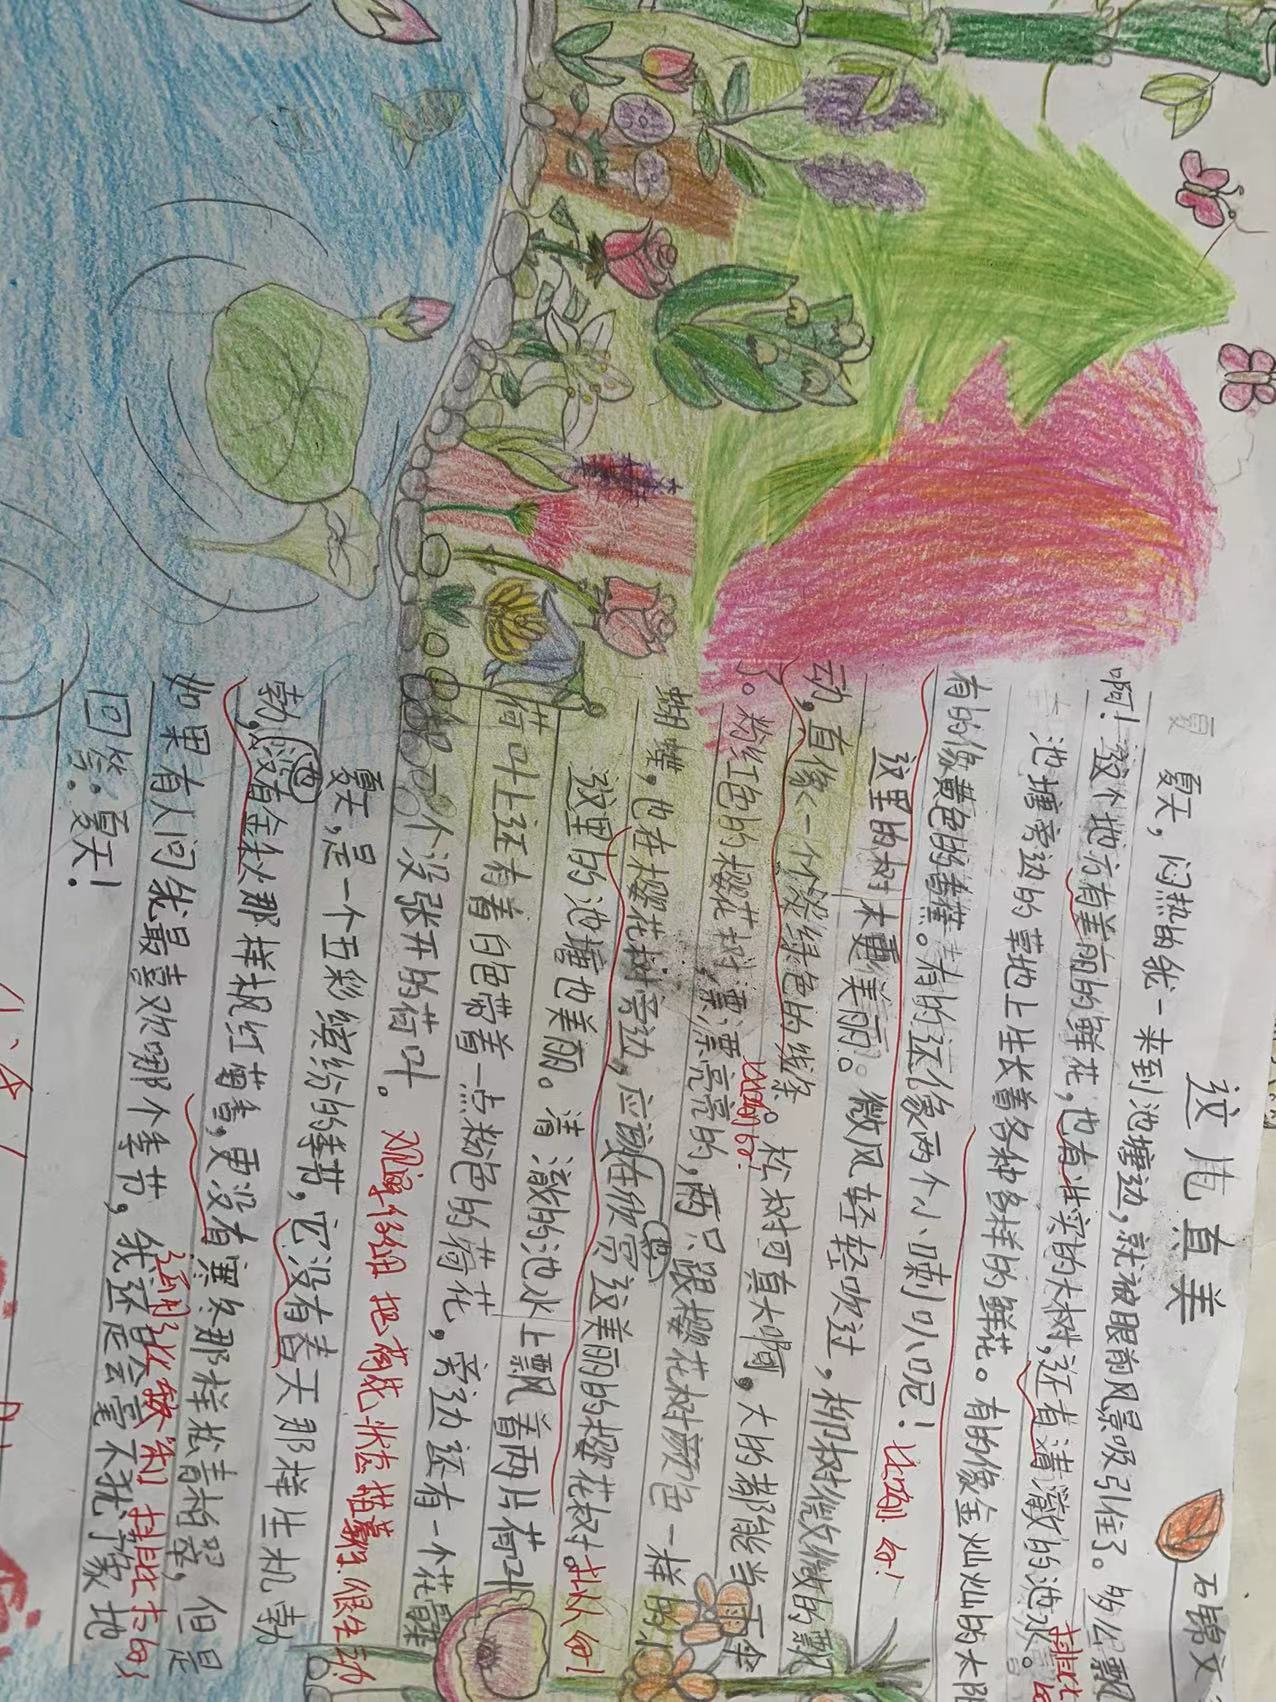 这儿真美
石锦文
夏天,闷热的我一来到池塘边,就被眼前风景吸引住了。多么飘
啊!这个地方有美丽的鲜花,也有壮实的大树,还有清澈的池水。
排比句
池塘旁边的草地上生长着各种各样的鲜花。有的像金灿灿的太阳
有的像黄色的香蕉。有的还像两个小喇叭呢!
比喻句!
这里的树木更美丽。微风轻轻吹过,柳树微微的飘
动,直像一个个淡绿色的线条。松树可真大啊,大的都能当雨伞
比喻句!
了。粉红色的樱花树,漂漂亮亮的,两只跟樱花树颜色一样的小
蝴蝶,也在樱花树旁边,应该在欣赏这美丽的樱花树。
拟人句!
这里的池塘也美丽。清澈的池水上飘着两片荷叶
荷叶上还有着白色带着一点粉色的荷花,旁边还有一个花骨
一个没张开的荷叶。
观察仔细 把荷花状态描摹得很生动
夏天,是一个五彩缤纷的季节,它没有春天那样生机勃
勃,没有金秋那样枫红菊香,更没有寒冬那样松青柏翠,但是
排比句
如果有人问我最喜欢哪个季节,我还是会毫不犹豫地
回答:夏天!